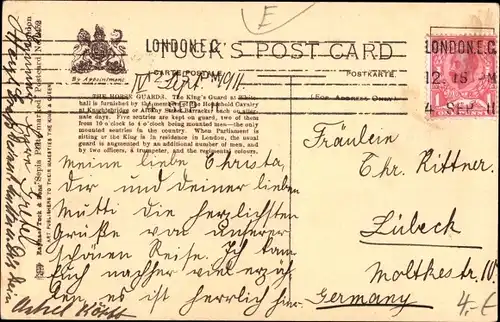 E
By Appointment
LONDON.E.C.
K'S POST CARD
CARTE POSTALE
POSTKARTE.
IV Sept. 1911
SEP
(For Address Only)
LONDON.E.C.
12.15 PM
4 SEP 11
THE HORSE GUARDS. The King's Guard at White-
hall is furnished by the members of the Household Cavalry
at Knightsbridge or Albany Street Barracks each on alter-
nate days. Five sentries are kept on guard, two of them
from 10 o'clock to 4 o'clock being mounted men—the only
mounted sentries in the country. When Parliament is
sitting or the King is in residence in London, the usual
guard is augmented by an additional number of men, and
by two officers, a trumpeter, and the regimental colours.
Meine liebe Christa,
dir und deiner lieben
Mutti die herzlichsten
Grüße von unserer
schönen Reise. Ich kann
Euch nachher viel erzäh
len, es ist herrlich hier.
Fräulein
Chr. Rittner.
Lübeck
Moltkestr. 10
Germany
4,-€
Raphael Tuck & Sons' Sepia Postcard
ART PUBLISHERS TO THEIR MAJESTIES THE KING & QUEEN